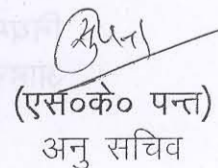 (एस०के० पन्त)
अनु सचिव